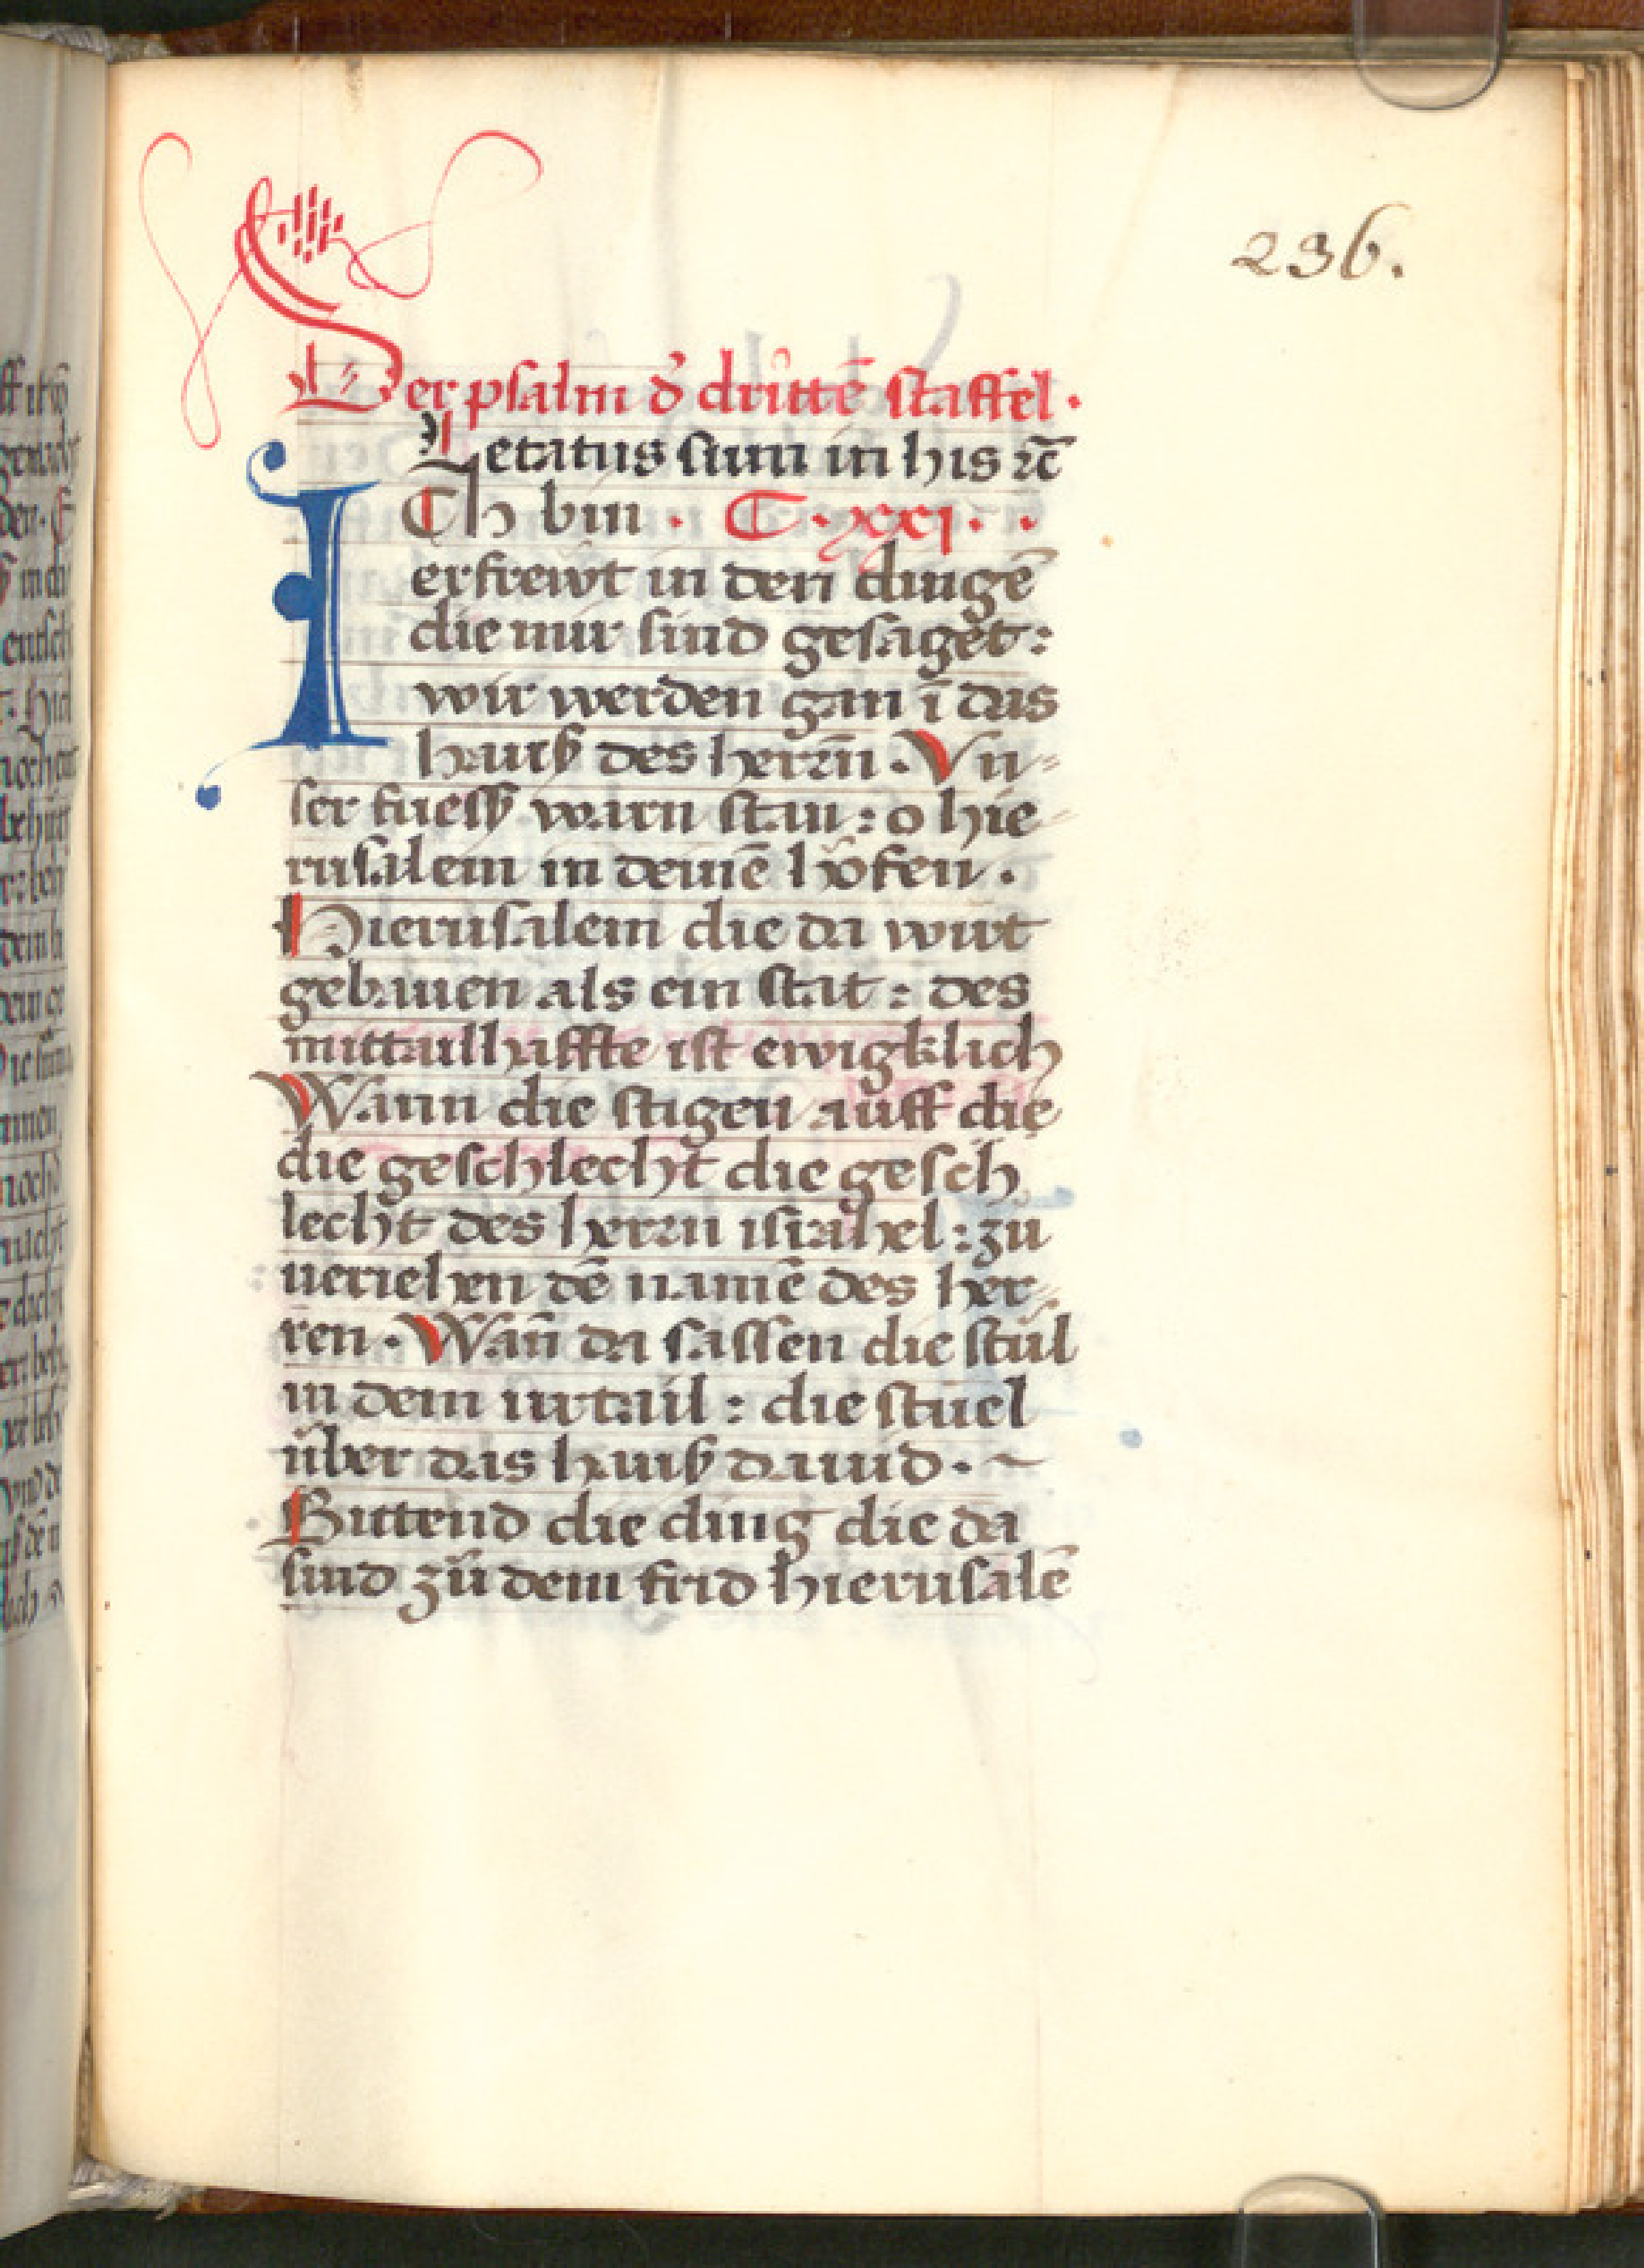 236.
Der psalm d̉ drittē staffel.
Letatus sum in his ⁊c̄
ICh bin. C.xxi..
erfrewt in den dingē
die mir sind gesaget:
wir werden gan ī das
hauß des herrn̄. Vn-
ser fuesß warn stan: o hie-
rusalem in deinē höfen.
Hierusalem die da wirt
gebauen als ein stat: des
mittailhaffte ist ewigklich
Wann die stigen auff die
die geschlecht die gesch
lecht des herrn israhel: zu
ueriehen dē namē des her-
ren. Wan̄ da sassen die stůl
in dem urtail: die stuel
über das hauß dauid. ~
Bittend die ding die da
sind zů dem frid hierusalē